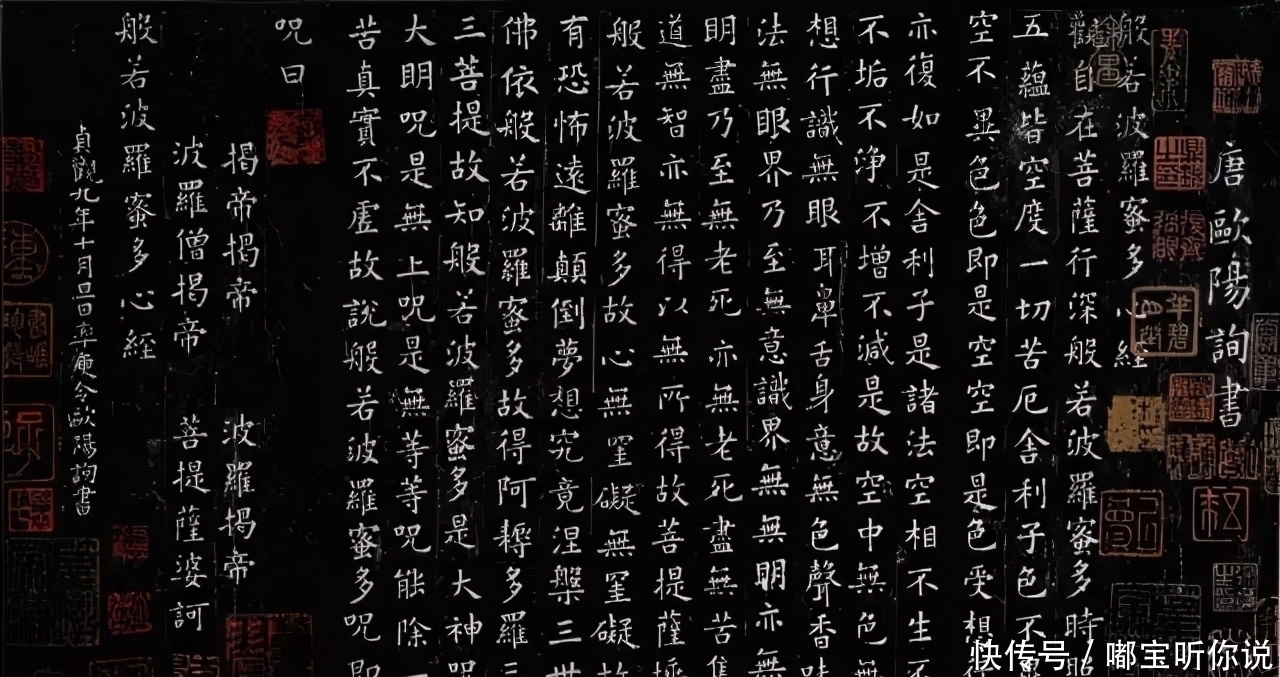 唐歐陽詢書
般若波羅蜜多心經
觀自在菩薩行深般若波羅蜜多時照
五蘊皆空度一切苦厄舍利子色不異
空不異色色即是空空即是色受想行
亦復如是舍利子是諸法空相不生不
不垢不淨不增不減是故空中無色無
想行識無眼耳鼻舌身意無色聲香味
法無眼界乃至無意識界無無明亦無
明盡乃至無老死亦無老死盡無苦集
道無智亦無得以無所得故菩提薩埵
般若波羅蜜多故心無罣礙無罣礙故
有恐怖遠離顛倒夢想究竟涅槃三世
佛依般若波羅蜜多故得阿耨多羅三
三菩提故知般若波羅蜜多是大神咒
大明咒是無上咒是無等等咒能除一
苦真實不虛故說般若波羅蜜多咒即
咒曰
揭帝揭帝 波羅揭帝
波羅僧揭帝 菩提薩婆訶
般若波羅蜜多心經
貞觀九年十月旦日率更令歐陽詢書
快传号／嘟宝听你说